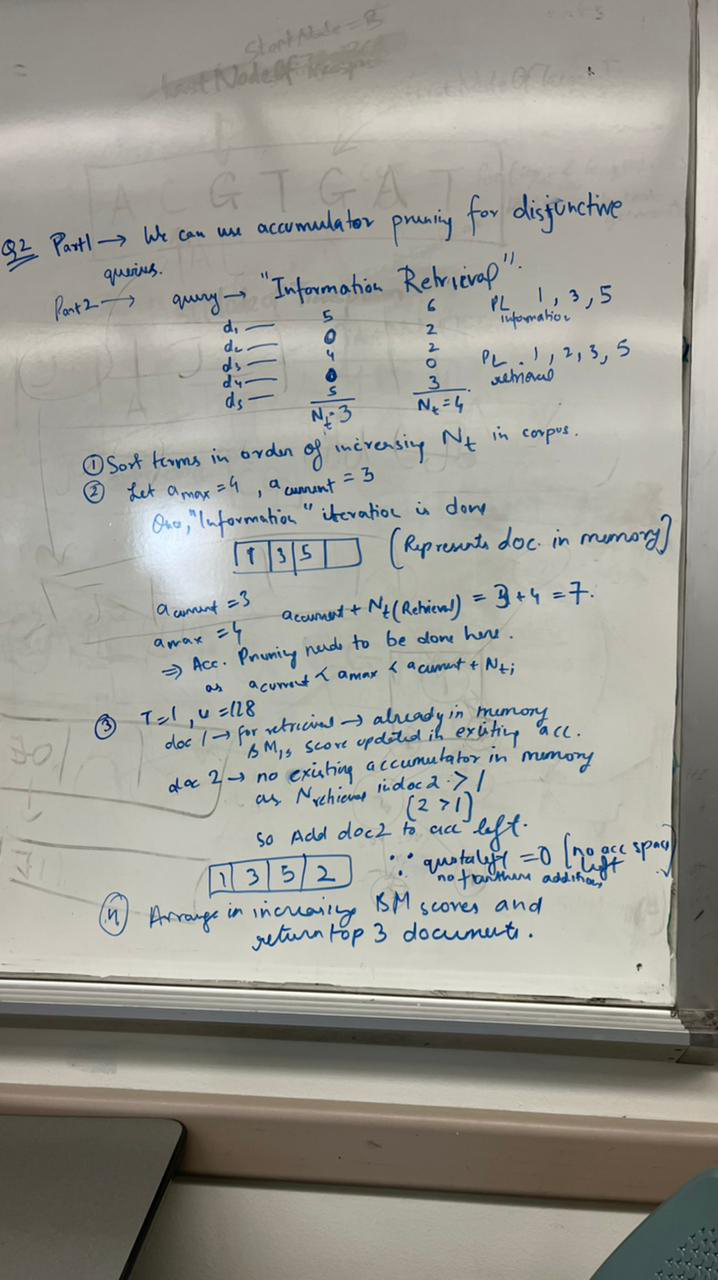 StartNode = B
Last Node Of
A C G T G A T
Q2 Part1 → We can use accumulator pruning for disjunctive
queries.
Part2 → query → "Information Retrieval".
5 6 PL information 1, 3, 5
d1 —
d2 — 0 2
d3 — 4 2 PL retrieval 1, 2, 3, 5
d4 — 0 0
d5 — 5 3
Nt = 3 Nt = 4
① Sort terms in order of increasing Nt in corpus.
② Let amax = 4, acurrent = 3
Once, "Information" iteration is done
1 3 5 (Represents doc. in memory)
acurrent = 3 acurrent + Nt (Retrieval) = 3 + 4 = 7.
amax = 4
⇒ Acc. Pruning needs to be done here.
as acurrent < amax < acurrent + Nti
③ T=1, u=128
doc 1 → for retrieval → already in memory
BM25 score updated in existing acc.
doc 2 → no existing accumulator in memory
as Nretrieval in doc 2 > 1
(2 > 1)
So Add doc2 to acc left.
1 3 5 2 ∵ quotaleft = 0 [no acc space left
no further additions]
④ Arrange in increasing BM scores and
return top 3 documents.